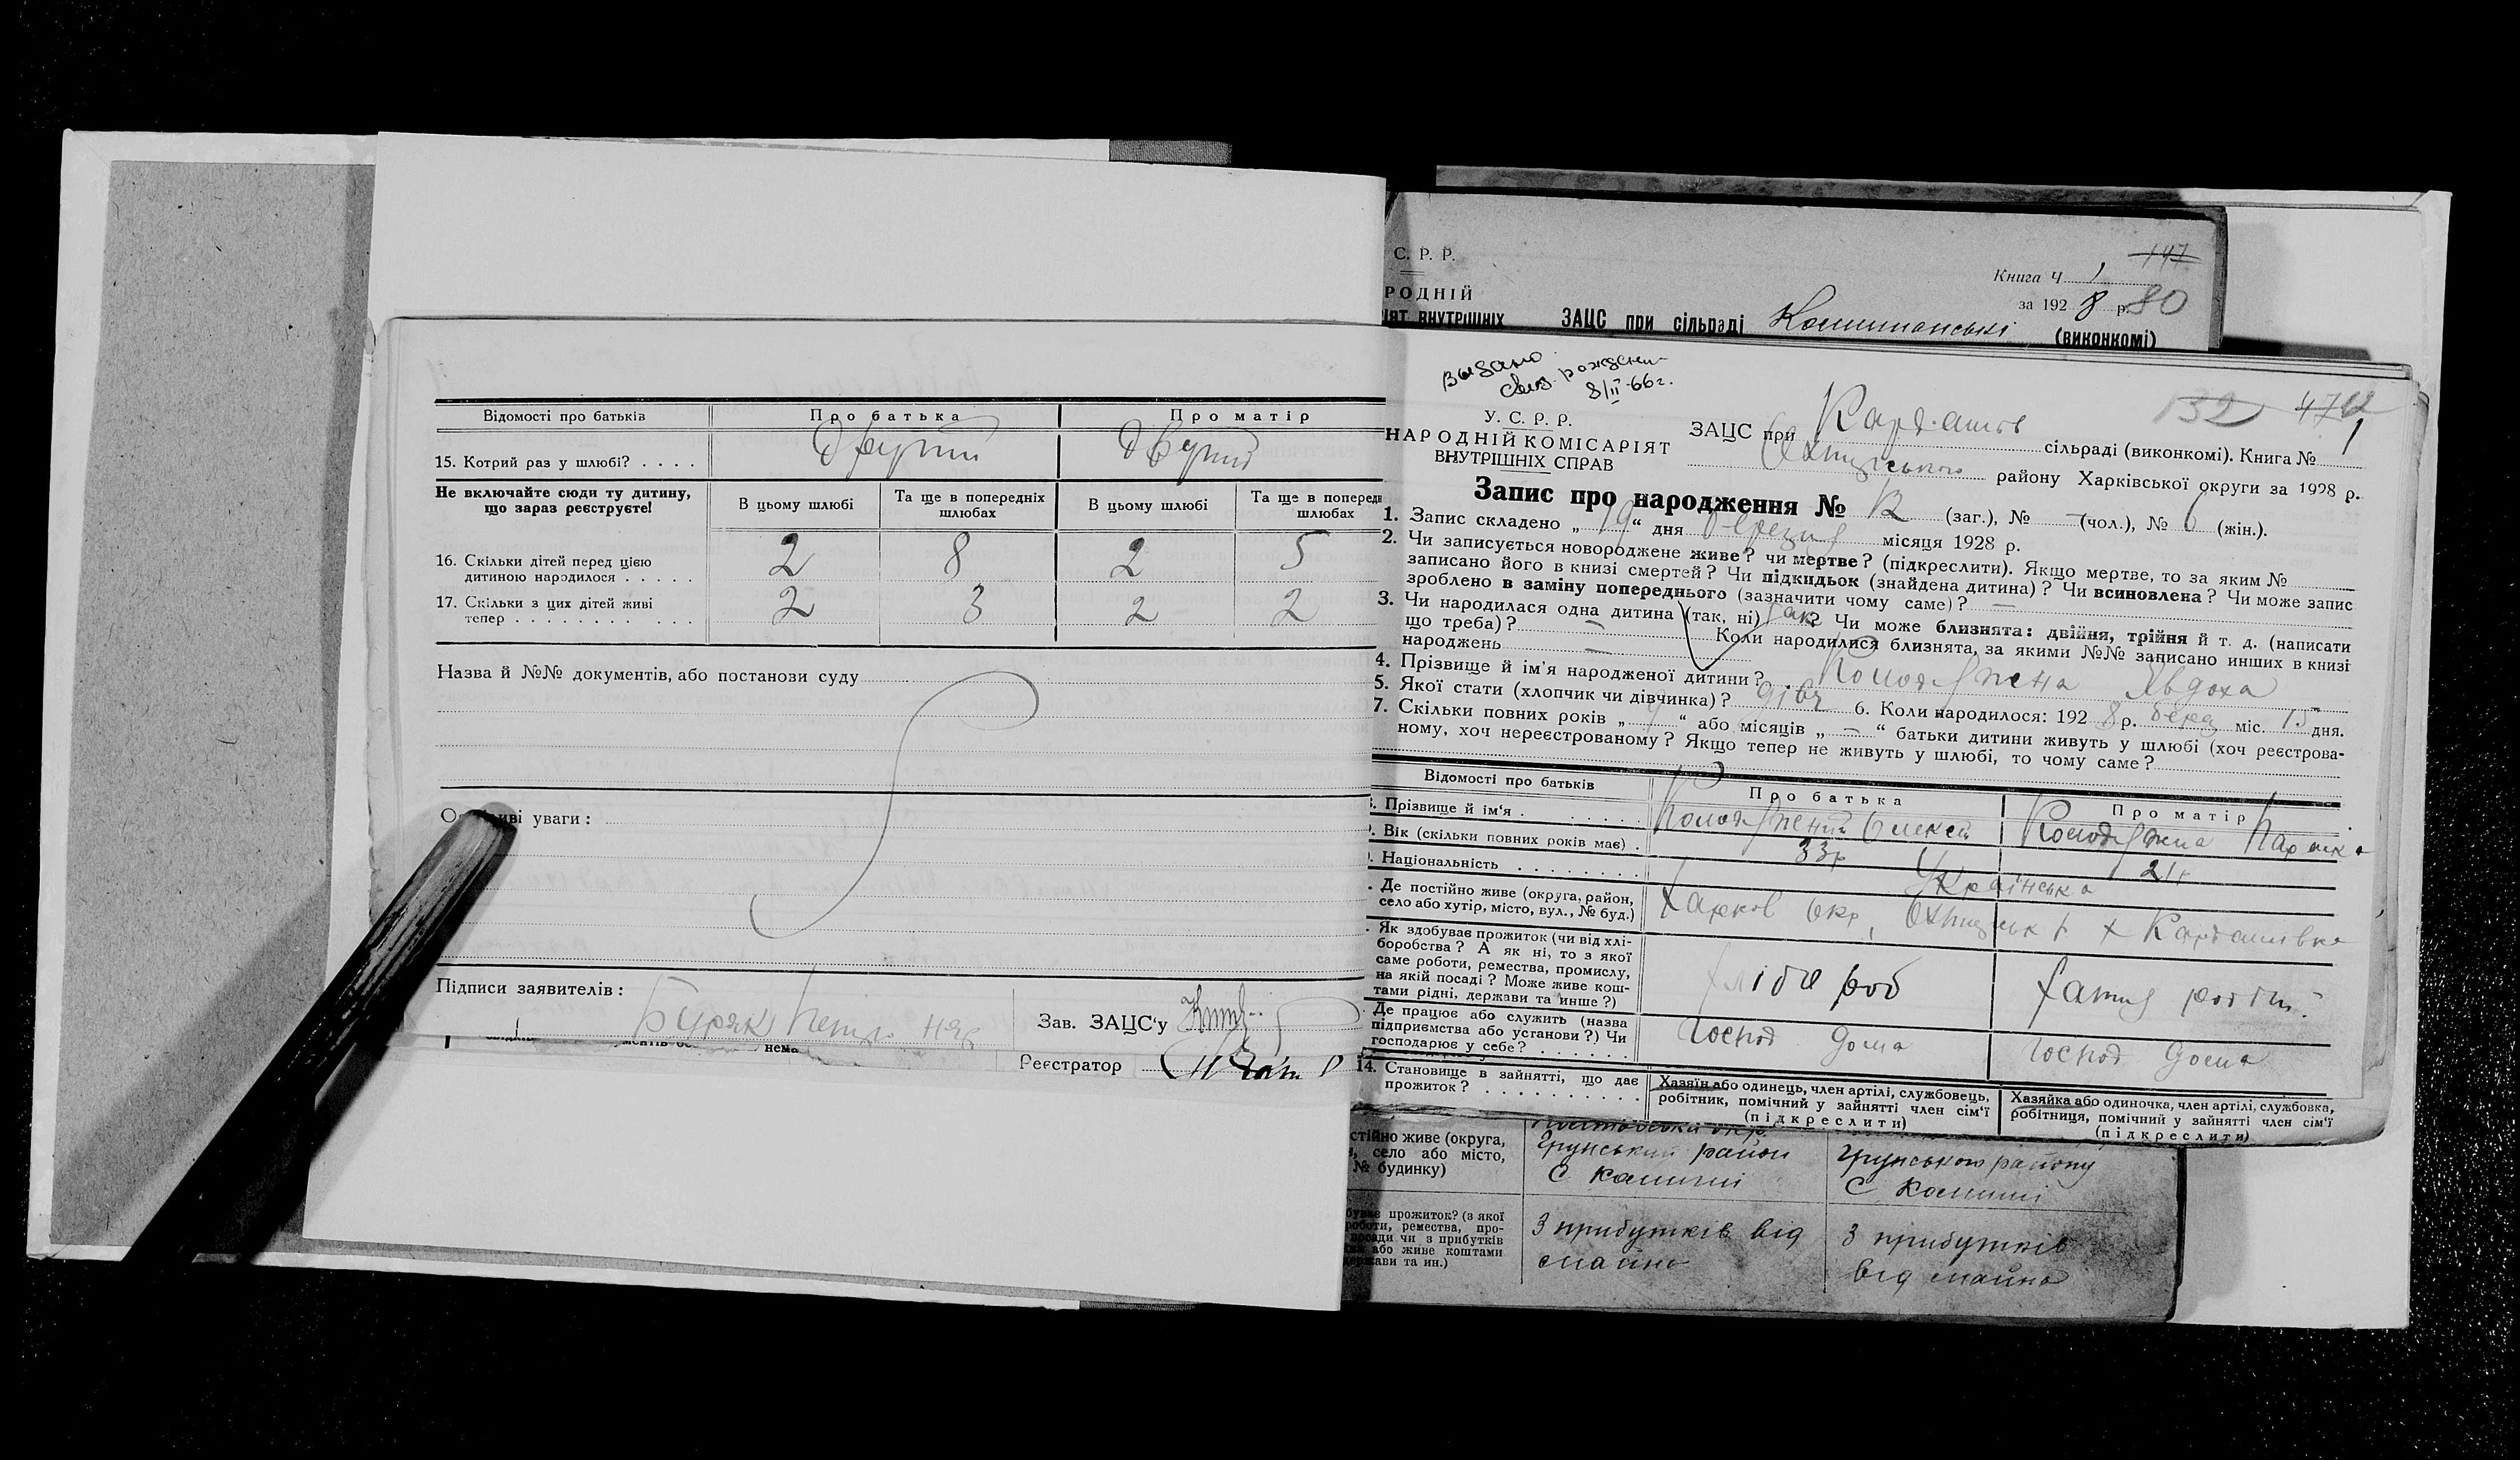 Відомості про батьків Про батька Про матір
15. Котрий раз у шлюбі? . . . . другий другий
Не включайте сюди ту дитину, що зараз реєструєте!
В цьому шлюбі Та ще в попередніх шлюбах В цьому шлюбі Та ще в поперед шлюбах
16. Скільки дітей перед цією
дитиною народилося . . . . . 2 8 2 5
17. Скільки з цих дітей живі
тепер . . . . . . . . . . . . 2 3 2 2
Назва й №№ документів, або постанови суду
уваги :
Підписи заявителів :
Буряк Петро
Зав. ЗАЦС‘у
нема
Реєстратор
С. Р. Р.
РОДНІЙ
ІЯТ ВНУТРІШНІХ
147
Книга Ч 1
за 1928 р. 80
ЗАЦС при сільраді (виконкомі)
Выдано
свид. рожден
8/II-66г.
У. С. Р. Р.
НАРОДНІЙ КОМІСАРІЯТ
ВНУТРІШНІХ СПРАВ
132
ЗАЦС при Кардашів сільраді (виконкомі). Книга № 1
Охтирського району Харківської округи за 1928 р.
Запис про народження № 12 (заг.), № – (чол.), № 6 (жін.).
1. Запис складено „ 19 “ дня березня місяця 1928 р.
2. Чи записується новороджене живе? чи мертве? (підкреслити). Якщо мертве, то за яким №
записано його в книзі смертей? Чи підкидьок (знайдена дитина)? Чи всиновлена? Чи може запис
зроблено в заміну попереднього (зазначити чому саме)? —
3. Чи народилася одна дитина (так, ні) так? Чи може близнята: двійня, трійня й т. д. (написати
що треба)? — Коли народилися близнята, за якими №№ записано инших в книзі
народжень —
4. Прізвище й ім'я народженої дитини? Колодяжена Явдоха
5. Якої стати (хлопчик чи дівчинка)? дівч 6. Коли народилося: 1928 р. берез міс. 15 дня.
7. Скільки повних років „ 4 “ або місяців „ — “ батьки дитини живуть у шлюбі (хоч реєстрова-
ному, хоч нереєстрованому? Якщо тепер не живуть у шлюбі, то чому саме?
Відомості про батьків Про батька Про матір
Прізвище й ім‘я . . . . . . Колодяжений Олексій Колодяжна Параска
Вік (скільки повних років має) . 33р
Національність . . . . . . . . Українська
Де постійно живе (округа, район,
село або хутір, місто, вул., № буд.) Харков окр, Охтирськ р х Кардашівка
Як здобуває прожиток (чи від хлі-
боробства? А як ні, то з якої
саме роботи, ремества, промислу,
на якій посаді? Може живе кош-
тами рідні, держави та инше?)
хлібороб хатня робот.
Де працює або служить (назва
підприємства або установи?) Чи
господарює у себе? . . . . . .
Господ дома Господ дома
14. Становище в зайнятті, що дає
прожиток? . . . . . . . . . .
Хазяїн або одинець, член артілі, службовець,
робітник, помічний у зайнятті член сім'ї
(підкреслити)
Хазяйка або одиночка, член артілі, службовка,
робітниця, помічний у зайнятті член сім'ї
(підкреслити)
живе (округа,
село або місто,
№ будинку)
Грунський район
С Комиші
Грунського району
С Комиші
прожиток? (з якої
роботи, ремества, про-
посади чи з прибутків
або живе коштами
держави та ин.)
З прибутків від
майна
З прибутків
від майна